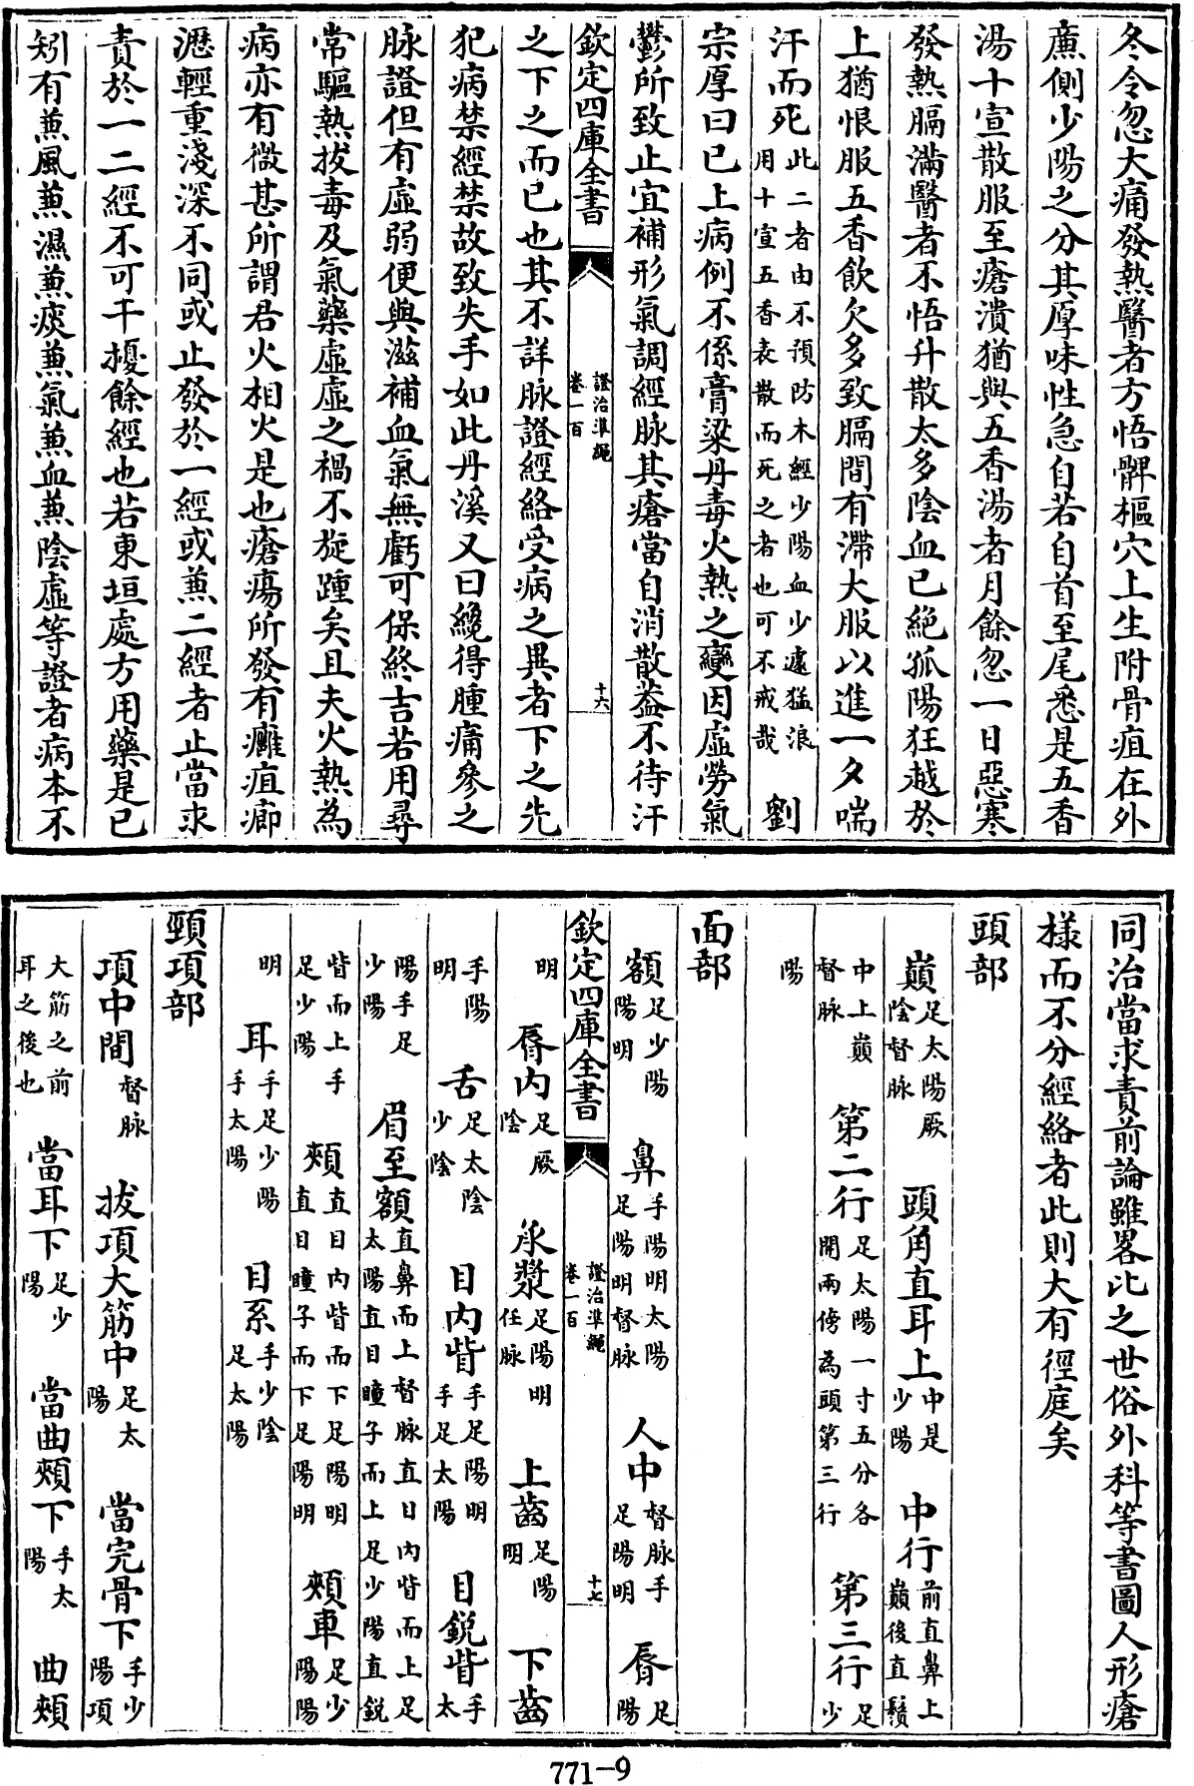 冬令忽大痛發熱醫者方悟髀樞穴上生附骨疽在外
廉側少陽之分其厚味性急自若自首至尾悉是五香
湯十宣散服至瘡潰猶與五香湯者月餘忽一日惡寒
發熱膈滿醫者不悟升散太多陰血已絶孤陽狂越於
上猶恨服五香飲欠多致膈間有滯大服以進一夕喘
汗而死此二者由不預防木經少陽血少遽猛浪用十宣五香表散而死之者也可不戒哉 劉
宗厚曰已上病例不係膏粱丹毒火熱之變因虛勞氣
鬱所致止宜補形氣調經脉其瘡當自消散葢不待汗
欽定四庫全書 證治準繩 卷一百 十六
之下之而已也其不詳脉證經絡受病之異者下之先
犯病禁經禁故致失手如此丹溪又曰纔得腫痛參之
脉證但有虛弱便與滋補血氣無虧可保終吉若用尋
常驅熱拔毒及氣藥虛虛之禍不旋踵矣且夫火熱為
病亦有微甚所謂君火相火是也瘡瘍所發有癰疽癤
瀝輕重淺深不同或止發於一經或兼二經者止當求
責於一二經不可干擾餘經也若東垣處方用藥是已
矧有兼風兼濕兼痰兼氣兼血兼陰虛等證者病本不
同治當求責前論雖畧比之世俗外科等書圖人形瘡
様而不分經絡者此則大有徑庭矣
頭部
巔足太陽厥陰督脉 頭角直耳上中是少陽 中行前直鼻上巔後直鬚
中上巔督脉 第二行足太陽一寸五分各開兩傍為頭第三行 第三行足少
陽
面部
額足少陽陽明 鼻手陽明太陽足陽明督脉 人中督脉手足陽明 唇足陽
欽定四庫全書 證治準繩 卷一百 十七
明 唇內足厥陰 承漿足陽明任脉 上齒足陽明 下齒
手陽明 舌足太陰少陰 目內眥手足陽明手足太陽 目銳眥手太
陽手足少陽 眉至額直鼻而上督脉直目內眥而上足太陽直目瞳子而上足少陽直銳
眥而上手足少陽 頰直目內眥而下足陽明直目瞳子而下足陽明 頰車足少陽陽
明 耳手足少陽手太陽 目系手少陰足太陽
頸項部
項中間督脉 拔項大筋中足太陽 當完骨下手少陽項
大筋之前耳之後也 當耳下足少陽 當曲頰下手太陽 曲頰
771-9